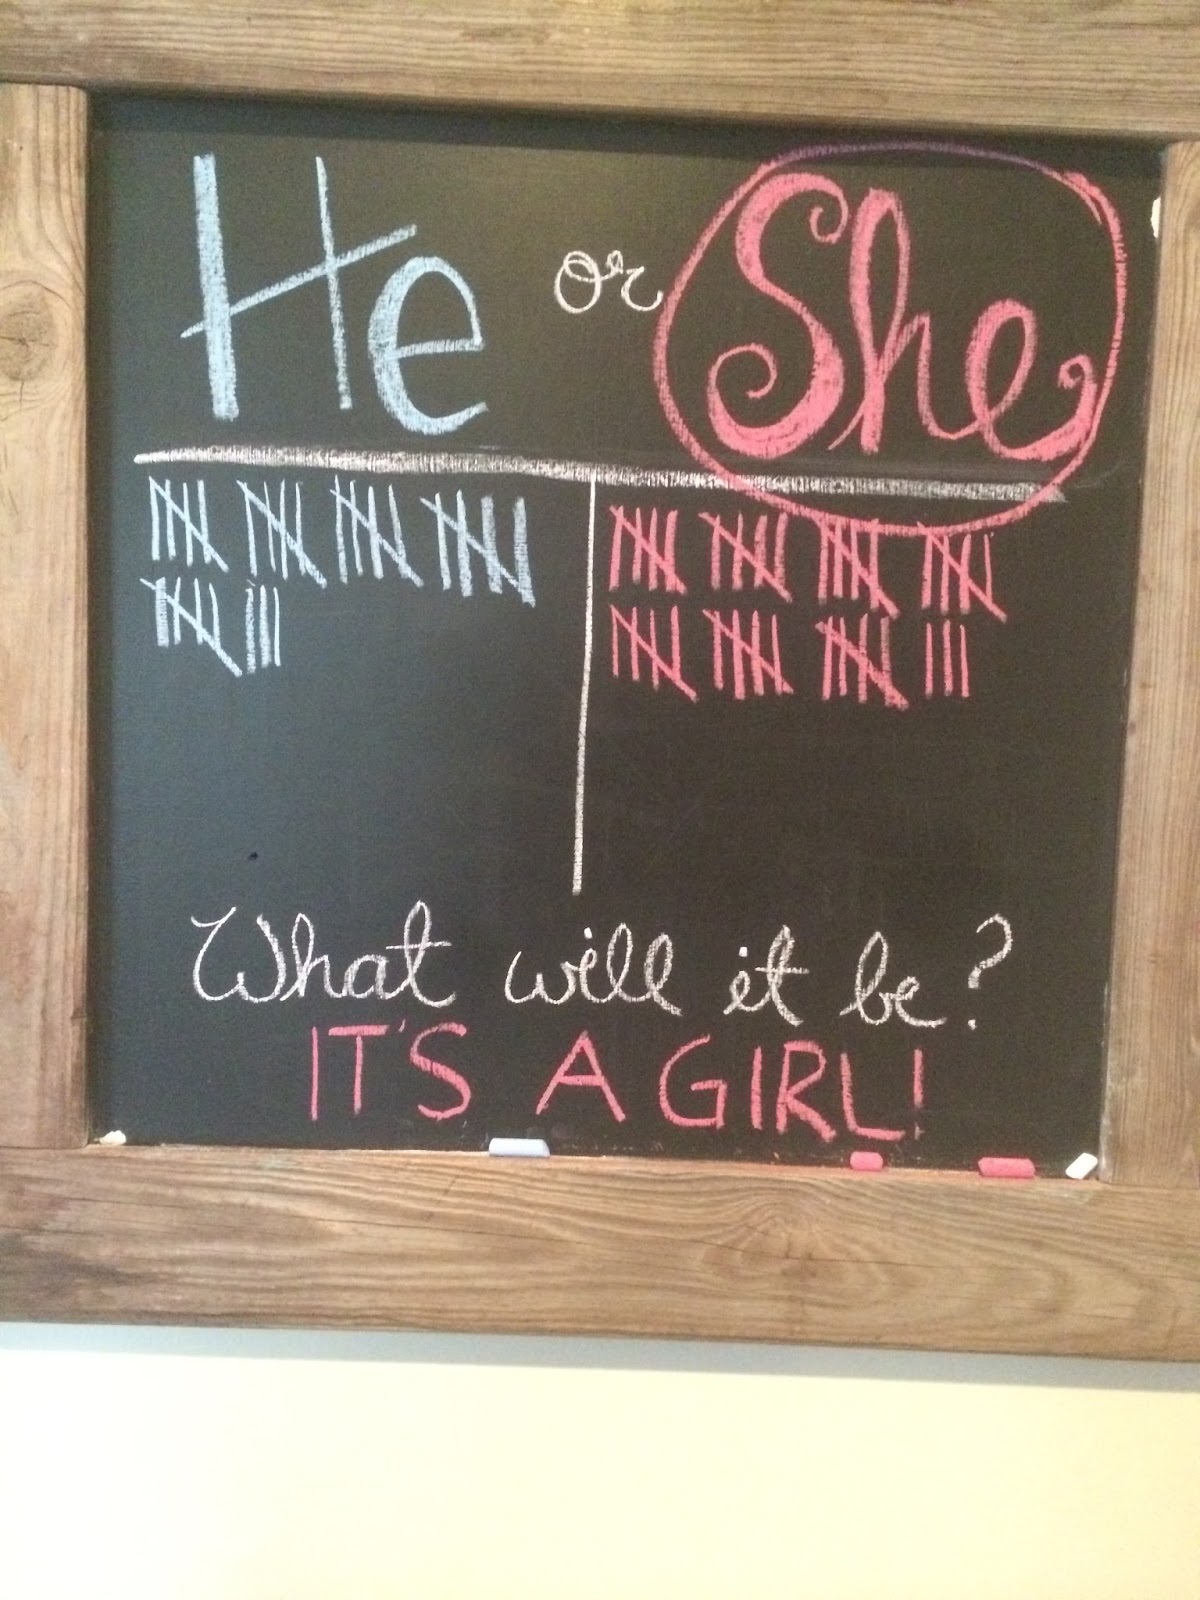 He or She
What will it be?
IT'S A GIRL!